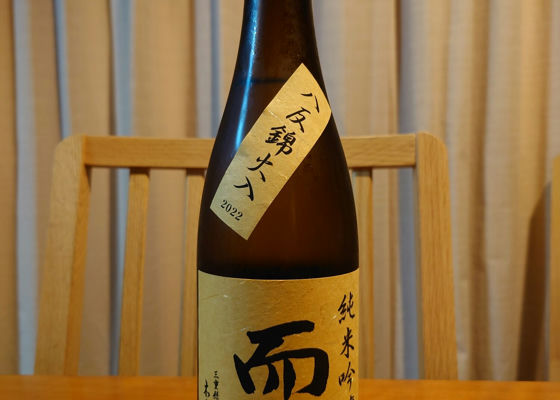 八反錦火入
2022
純米吟
而
三重